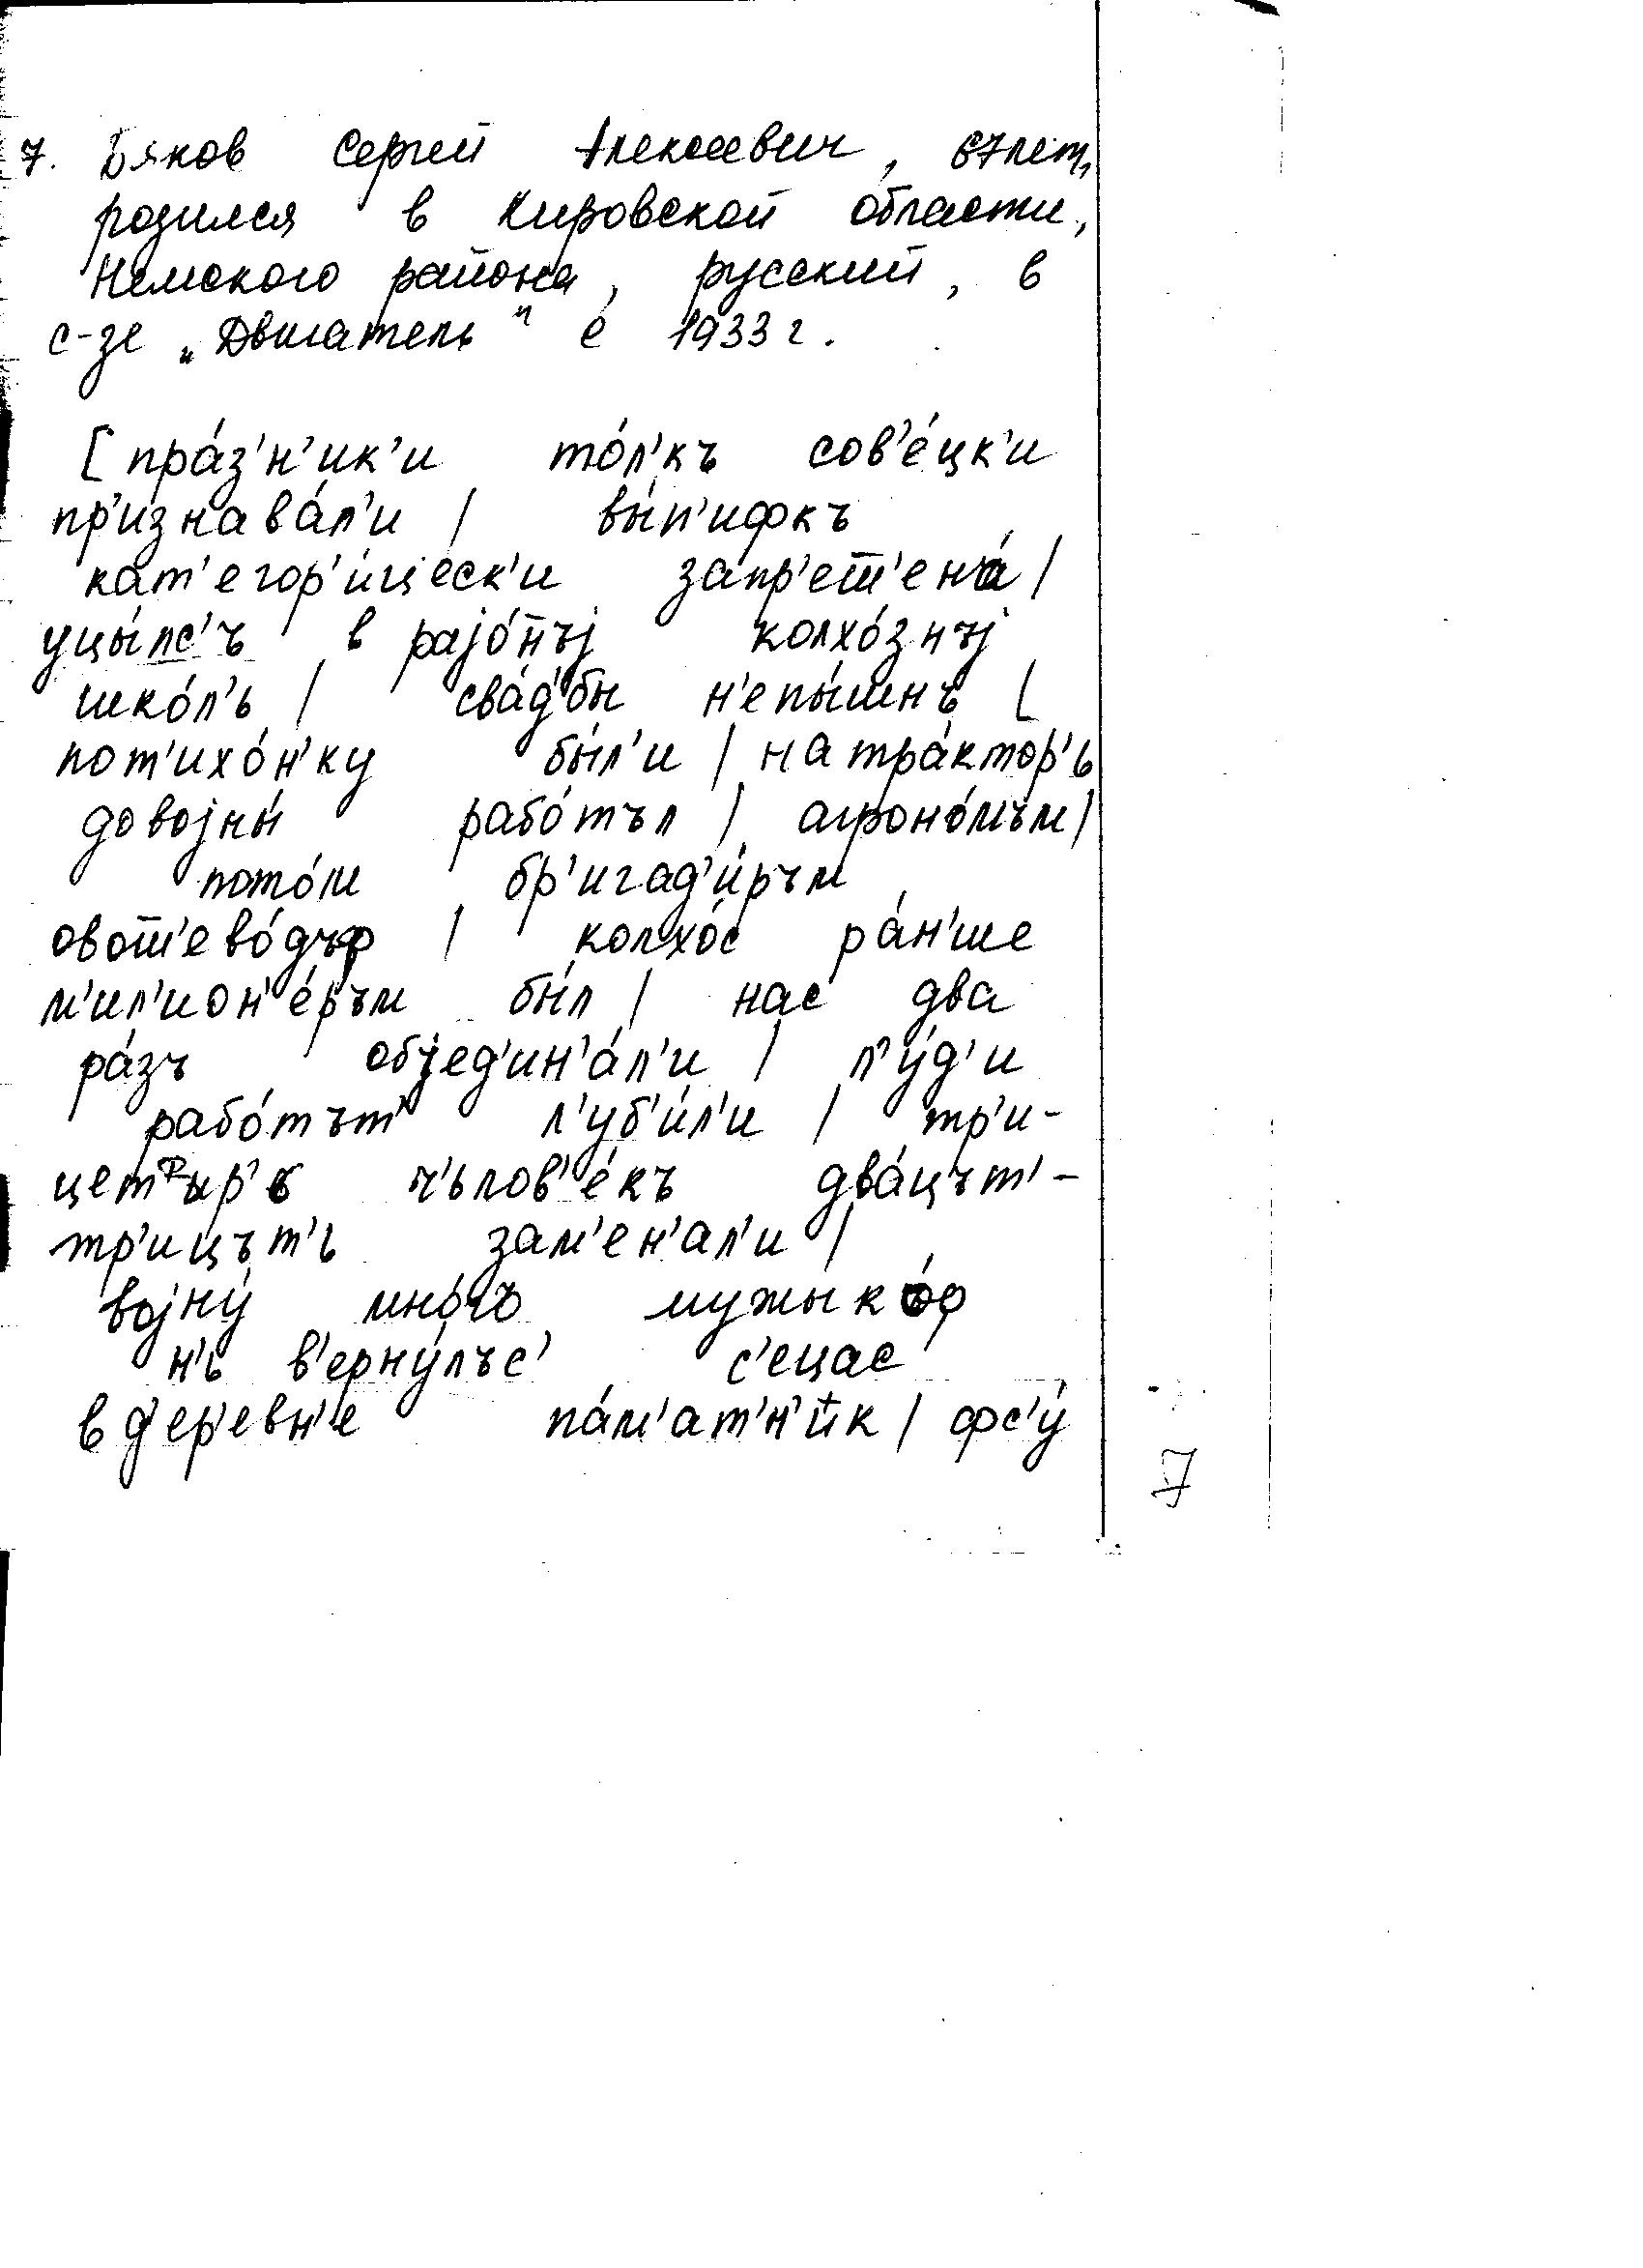 7. Бяков Сергей Алексеевич, 67 лет,
родился в Кировской области,
Немского района, русский, в
с-зе „Двигатель" с 1933 г.
[пра́з'н'ик'и то́л'къ сов'е́цк'и
пр'изнава́л'и | вы́п'ифкъ
кат'егор'и́цеск'и запр'ет̅'ена́ |
уцы́лс'ъ в рајо́н̅ъј колхо́знъј
шко́л'ь | сва́д'бы н'епы́шнъ |
пот'ихо́н'ку бы́л'и | на тра́ктор'ь
до војны́ рабо́тъл | агроно́мъм |
пото́м бр'игад'и́ръм
овот̅'ево́дъф | колхо́с ра́н'ше
м'ил'ион'е́ръм бы́л | нас два
ра́зъ објед'ин'а́л'и | л'у́д'и
рабо́тът' л'уб'и́л'и | тр'и-
цеты́р'ь ч'ьлов'е́къ два́цът'-
тр'ицът'ь зам'ен'ал'и |
војну́ мно́гъ мужыко́ф
н'ь в'ерну́лъс' с'ецас
в д'ер'евн'е па́м'ат'н'ик | фс'у́
7